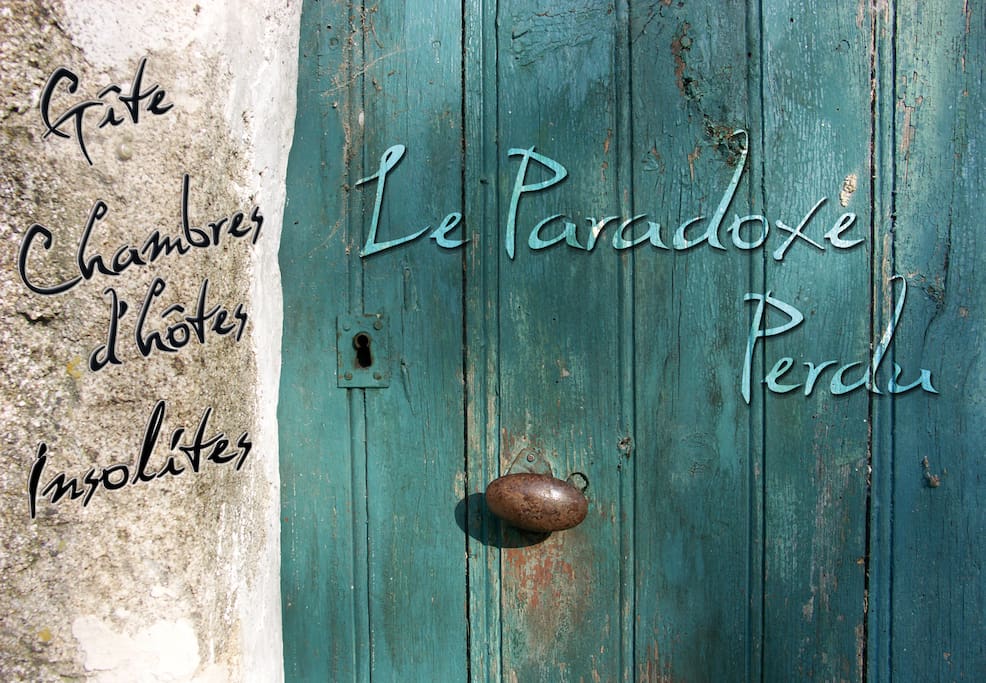 Gîte
Chambres
d'hôtes
insolites
Le Paradoxe
Perdu